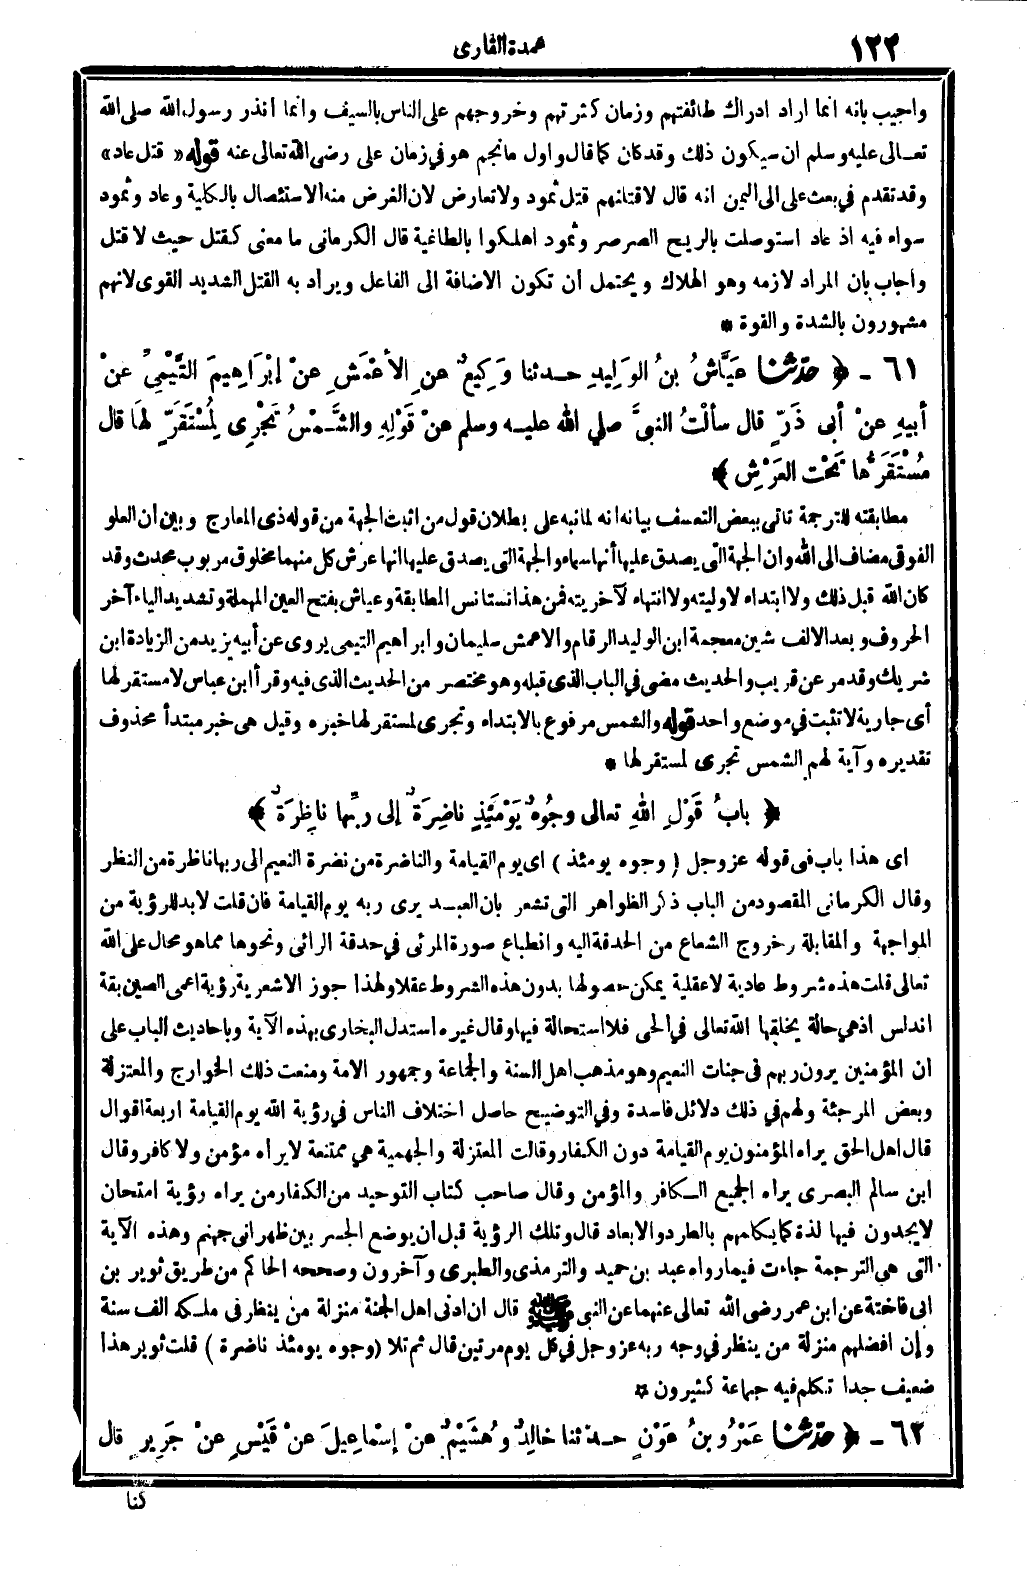 ١٢٢
عمدة القارى
واجيب بانه انما اراد ادراك طائفتهم وزمان كثرتهم وخروجهم على الناس بالسيف وانما انذر رسول الله صلى الله
تعالى عليه وسلم ان سيكون ذلك وقد كان كما قال واول ما نجم هو فى زمان على رضى الله تعالى عنه قوله « قتل عاد»
وقد تقدم في بعث على الى اليمن انه قال لاقتلنهم قتل ثمود ولا تعارض لان الغرض منه الاستئصال بالكلية وعاد وثمود
سواء فيه اذ عاد استوصلت بالريح الصرصر وثمود اهلكوا بالطاغية قال الكرمانى ما معنى كقتل حيث لا قتل
واجاب بان المراد لازمه وهو الهلاك ويحتمل أن تكون الاضافة الى الفاعل ويراد به القتل الشديد القوى لانهم
مشهورون بالشدة والقوة *
٦١ ـ ﴿ حدثنا عَيَّاشُ بنُ الوَلِيدِ حدثنا وَكِيعٌ عنِ الأعْمَشِ عنْ إبْرَاهِيمَ التَّيْمِىِّ عنْ
أبيهِ عنْ أبى ذَرٍّ قال سألْتُ النبىَّ صلى الله عليه وسلم عنْ قَوْلِهِ والشَّمْسُ تَجْرِى لِمُسْتَقَرٍّ لهَا قال
مُسْتَقَرُّها تَحْتَ العَرْشِ ﴾*
مطابقته للترجمة تاتى ببعض التعسف بيانه انه لما نبه على بطلان قول من اثبت الجهة من قوله ذى المعارج وبين أن العلو
الفوقى مضاف الى الله وان الجهة التى يصدق عليها أنها سماء والجهة التى يصدق عليها انها عرش كل منهما مخلوق مربوب محدث وقد
كان الله قبل ذلك ولا ابتداء لاوليته ولا انتهاء لآخريته فمن هذا تستانس المطابقة وعياش بفتح العين المهملة وتشديد الياء آخر
الحروف وبعد الالف شين معجمة ابن الوليد الرقام والاعمش سليمان وابراهيم التيمى يروى عن أبيه يزيد من الزيادة ابن
شريك وقد مر عن قريب والحديث مضى في الباب الذى قبله وهو مختصر من الحديث الذى فيه وقرأ ابن عباس لا مستقر لها
أى جارية لا تثبت في موضع واحد قوله والشمس مرفوع بالابتداء وتجرى لمستقر لها خبره وقيل هى خبر مبتدأ محذوف
تقديره وآية لهم الشمس تجرى لمستقر لها *
﴿ بابُ قَوْلِ اللهِ تعالى وجُوهٌ يَوْمَئِذٍ ناضِرَةٌ إلى ربِّها ناظِرَةٌ ﴾*
اى هذا باب فى قوله عز وجل ( وجوه يومئذ ) اى يوم القيامة والناضرة من نضرة النعيم الى ربها ناظرة من النظر
وقال الكرمانى المقصود من الباب ذكر الظواهر التى تشعر بان العبد يرى ربه يوم القيامة فان قلت لا بد للرؤية من
المواجهة والمقابلة وخروج الشعاع من الحدقة اليه وانطباع صورة المرئى في حدقة الرائى ونحوها مما هو محال على الله
تعالى قلت هذه شروط عادية لا عقلية يمكن حصولها بدون هذه الشروط عقلا ولهذا جوز الاشعرية رؤية اعمى الصين بقة
اندلس اذ هي حالة يخلقها الله تعالى في الحى فلا استحالة فيها وقال غيره استدل البخارى بهذه الآية وباحاديث الباب على
ان المؤمنين يرون ربهم فى جنات النعيم وهو مذهب اهل السنة والجماعة وجمهور الامة ومنعت ذلك الخوارج والمعتزلة
وبعض المرجئة ولهم في ذلك دلائل فاسدة وفي التوضيح حاصل اختلاف الناس في رؤية الله يوم القيامة اربعة اقوال
قال اهل الحق يراه المؤمنون يوم القيامة دون الكفار وقالت المعتزلة والجهمية هي ممتنعة لا يراه مؤمن ولا كافر وقال
ابن سالم البصرى يراه الجميع الكافر والمؤمن وقال صاحب كتاب التوحيد من الكفار من يراه رؤية امتحان
لا يجدون فيها لذة كما يكلمهم بالطرد والابعاد قال وتلك الرؤية قبل ان يوضع الجسر بين ظهرانى جهنم وهذه الآية
التى هى الترجمة جاءت فيما رواه عبد بن حميد والترمذى والطبرى وآخرون وصححه الحاكم من طريق ثوير بن
ابى فاختة عن ابن عمر رضى الله تعالى عنهما عن النبى ﷺ قال ان ادنى اهل الجنة منزلة من ينظر فى ملكه الف سنة
وإن افضلهم منزلة من ينظر في وجه ربه عز وجل في كل يوم مرتين قال ثم تلا (وجوه يومئذ ناضرة ) قلت ثوير هذا
ضعيف جدا تكلم فيه جماعة كثيرون *
٦٢ ـ ﴿ حدثنا عَمْرُو بنُ عَوْنٍ حدثنا خالِدٌ وهُشَيْمٌ عنْ إسْماعِيلَ عنْ قَيْسٍ عنْ جَرِيرٍ قال
كنا